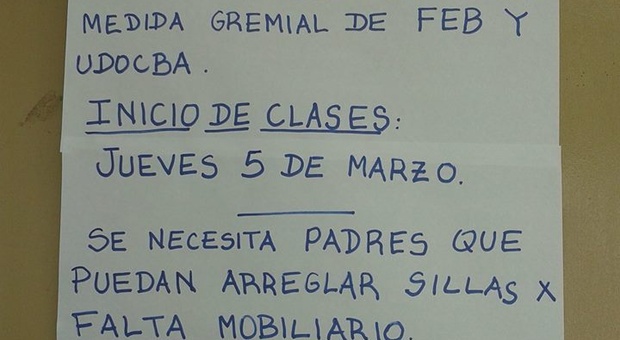 MEDIDA GREMIAL DE FEB Y
UDOCBA.
INICIO DE CLASES:
JUEVES 5 DE MARZO.
SE NECESITA PADRES QUE
PUEDAN ARREGLAR SILLAS X
FALTA MOBILIARIO.